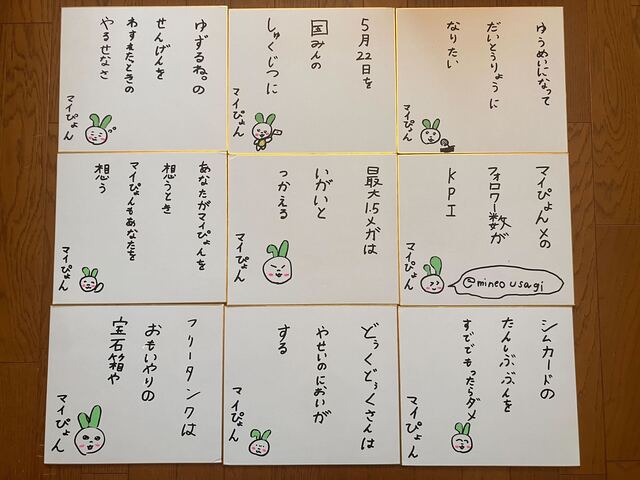 ゆうめいになって
だいとうりょうに
なりたい
マイぴょん
5月22日を
国みんの
しゅくじつに
マイぴょん
ゆずるね。の
せんげんを
わすれたときの
やるせなさ
マイぴょん
マイぴょん〆の
フォロワー数が
KPI
マイぴょん
@mineo usagi
最大1.5メガは
いがいと
つかえる
マイぴょん
あなたがマイぴょんを
想うとき
マイぴょんもあなたを
想う
マイぴょん
シムカードの
たんしぶぶんを
すででもったらダメ
マイぴょん
どぅくどぅくさんは
やせいのにおいが
する
マイぴょん
フリータンクは
おもいやりの
宝石箱や
マイぴょん